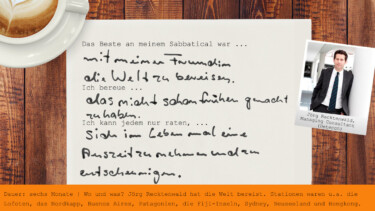 Das Beste an meinem Sabbatical war ...
mit meinen Freunden
die Welt zu bereisen.
Ich bereue ...
das nicht schon früher gemacht
zu haben.
Ich kann jedem nur raten, ...
Sich im Leben mal eine
Auszeit zu nehmen und zu
entschleunigen.
Managing Consultant
Dauer: sechs Monate | Wo und was? Jörg hat die Welt bereist. Stationen waren u.a. die
Lofoten, das Nordkapp, Buenos Aires, Patagonien, die Fiji-Inseln, Sydney, Neuseeland und Hongkong.